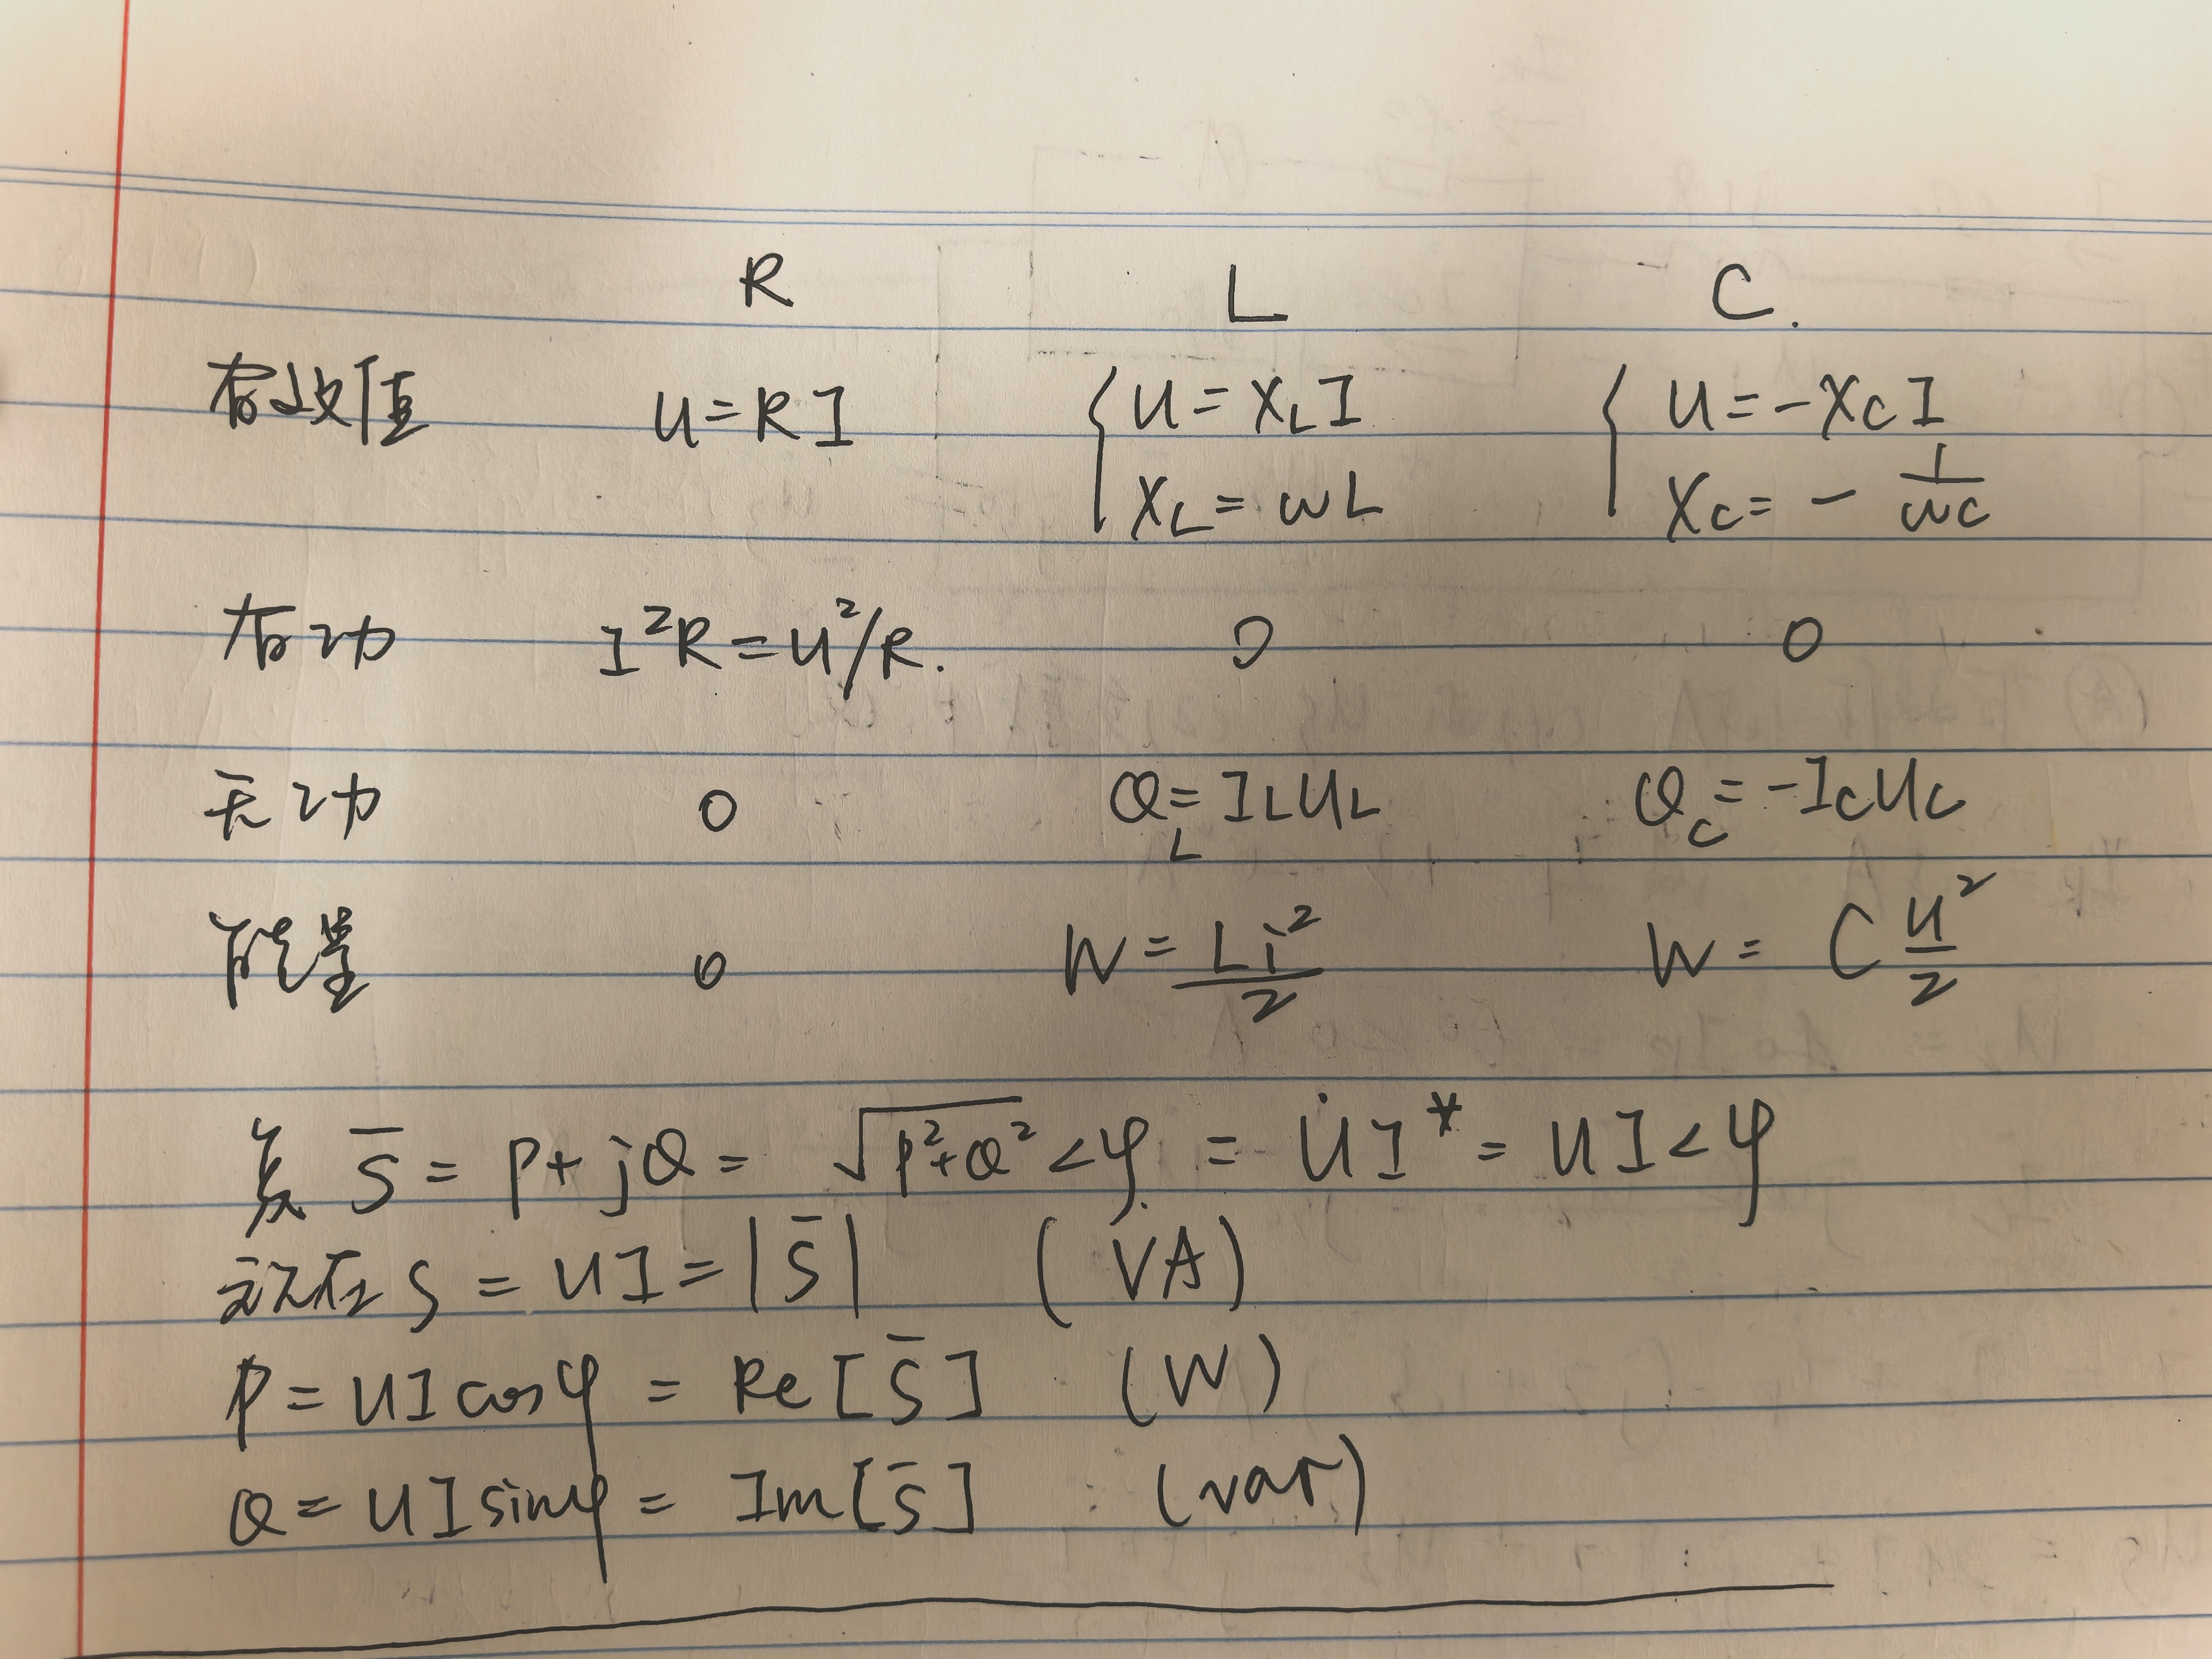 R L C.
有效值 U=RI { U=X_L I { U=-X_C I
X_L=ωL X_C=-1/ωC
有功 I²R=U²/R. 0 0
无功 0 Q_L=I_L U_L Q_C=-I_C U_C
能量 0 W=Li²/2 W=C U²/2
复 S̄=P+jQ=√(P²+Q²)<φ=U̇I*=UI<φ
视在S=UI=|S̄| (VA)
P=UIcosφ=Re[S̄] (W)
Q=UIsinφ=Im[S̄] (var)